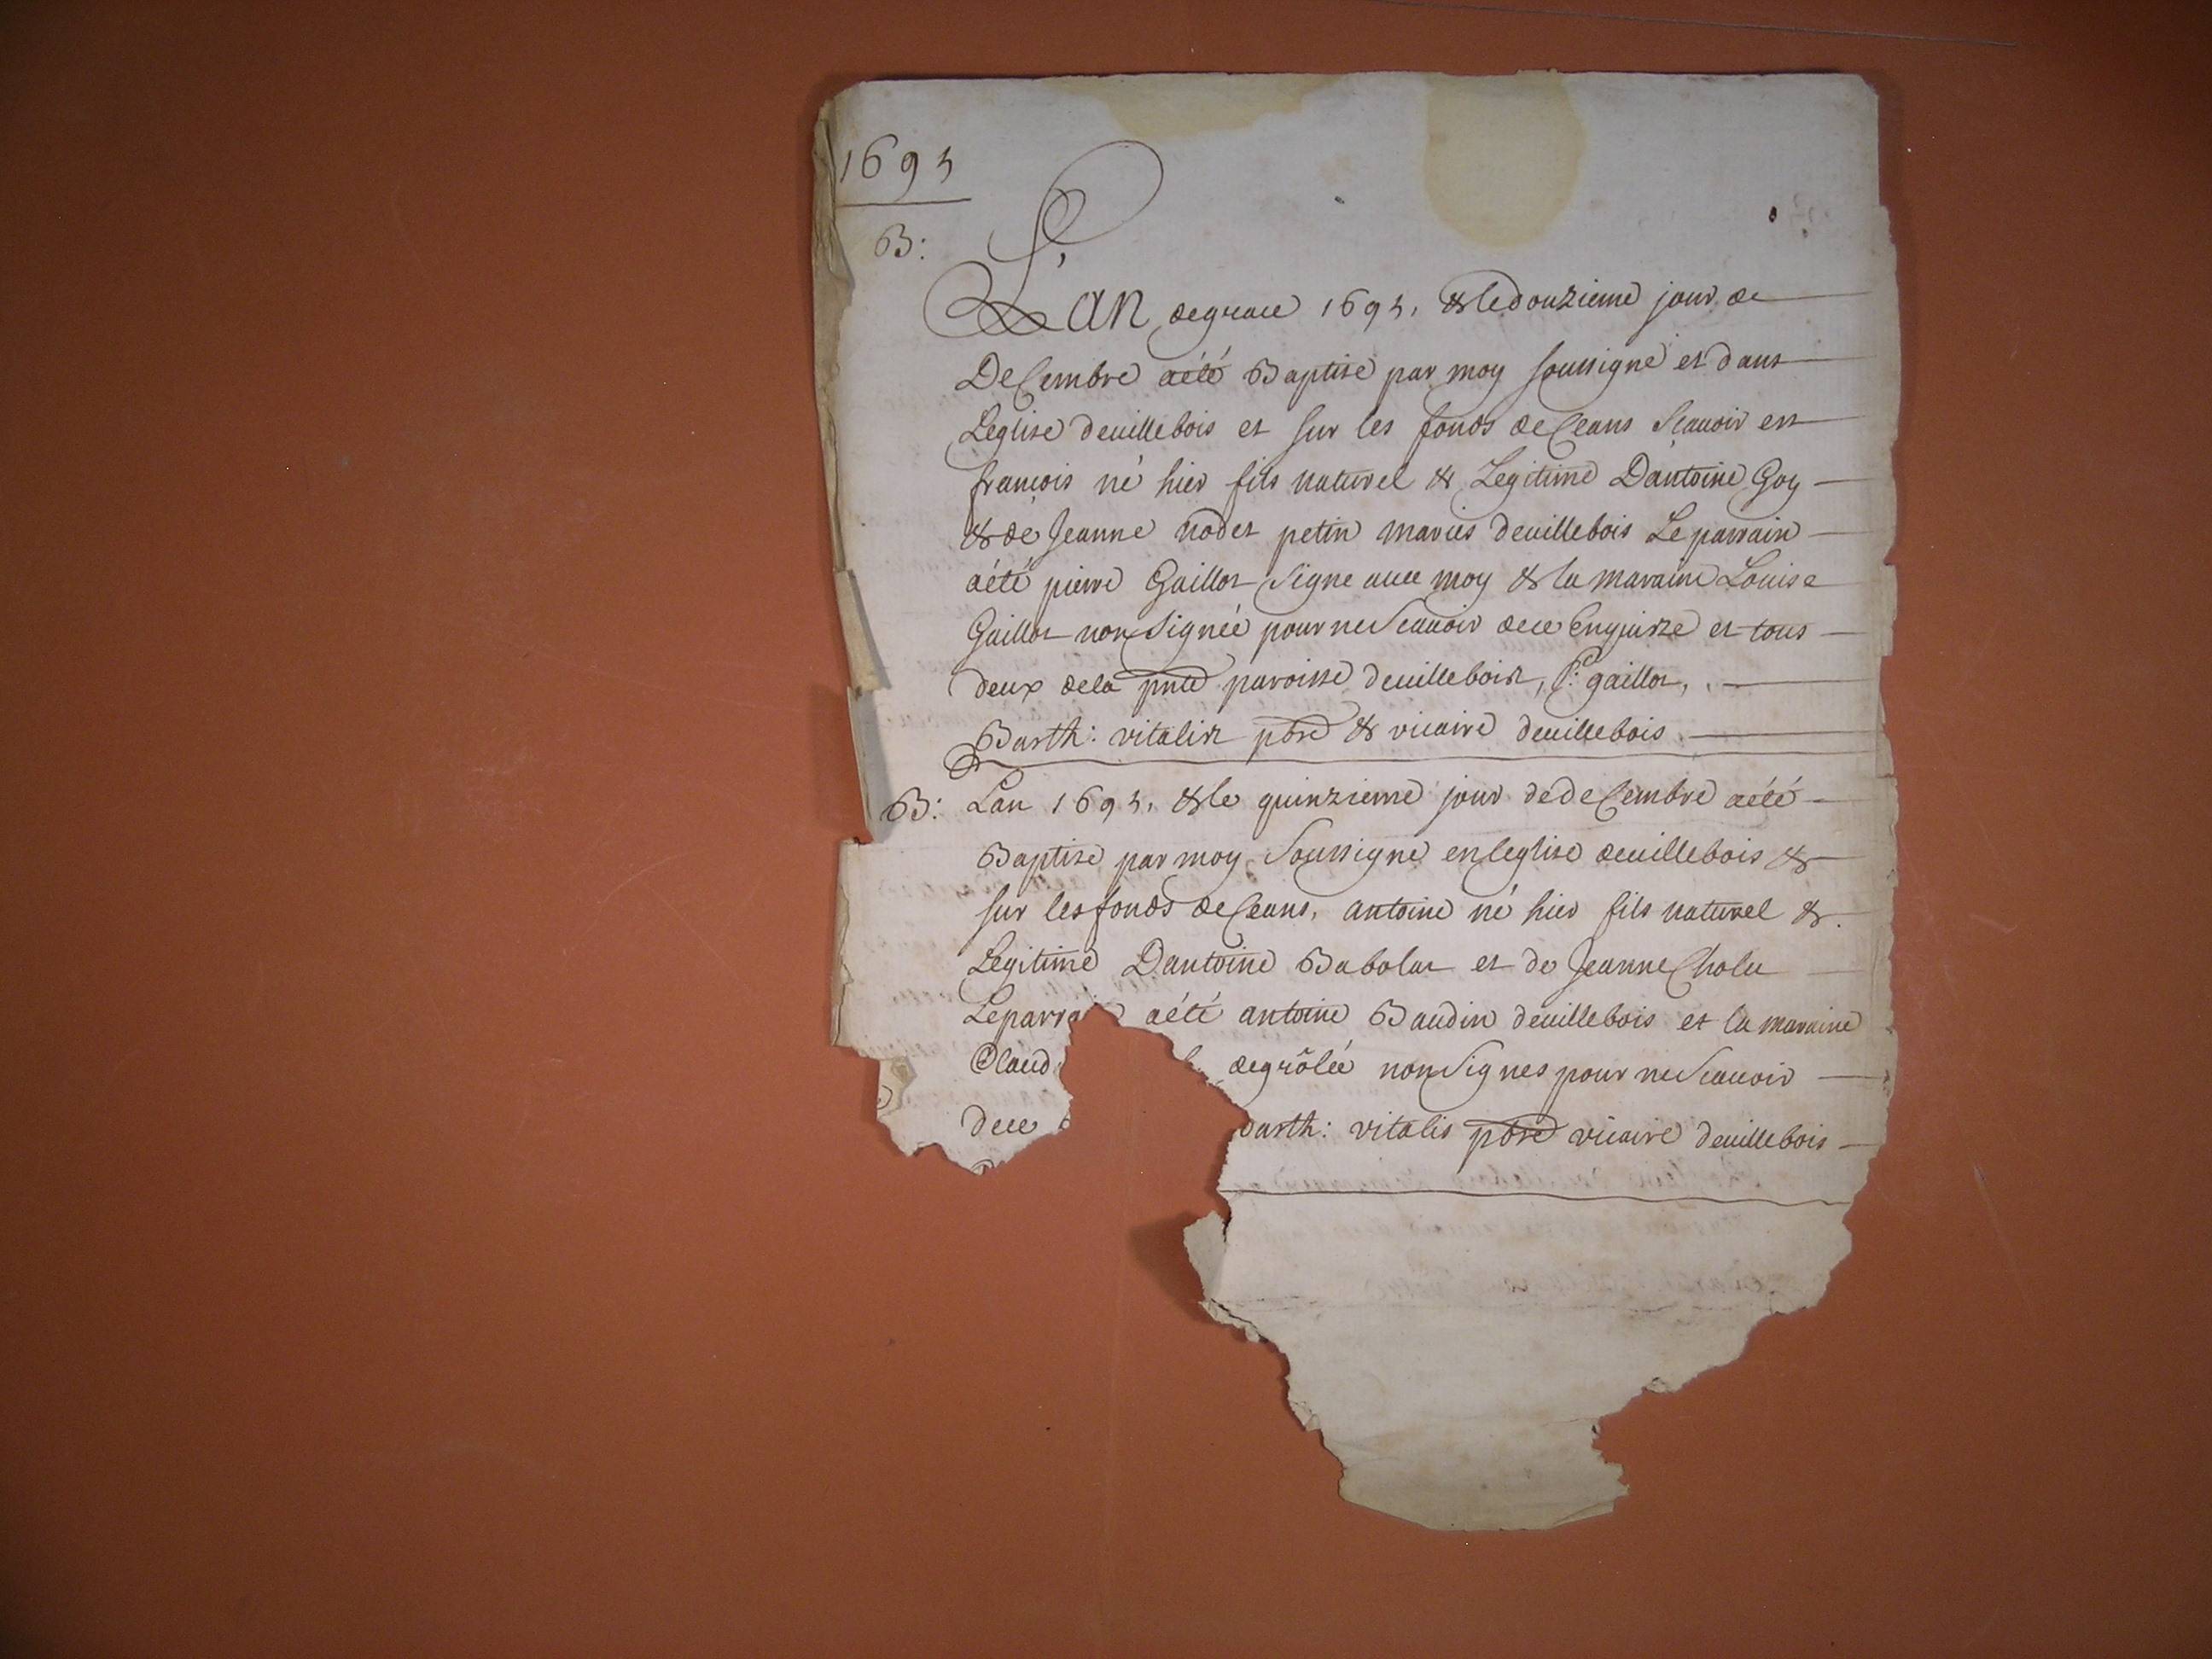 1693
B:
L'AN de grace 1693, & le douzieme jour de
Decembre a été Baptisé par moy soussigné et dans
Leglise deuillebois et sur les fonds de Ceans Scauoir est
francois né hier fils naturel & Legitime Dantoine Goy
& de Jeanne nodet petin mariés deuillebois Le parrain
a été pierre Gaillot signe auec moy & la maraine Louise
Gaillot non signée pour ne scauoir de ce Enquize et tous
deux de la pnte paroisse deuillebois, P: gaillot,
Barth: vitalis pbre & vicaire deuillebois
B: Lan 1693, & le quinzieme jour de decembre a été
Baptisé par moy Soussigné en leglise deuillebois &
sur les fonds de Ceans, antoine né hier fils naturel &.
Legitime Dantoine Babolat et de Jeanne Cholu
Le parra a été antoine Baudin deuillebois et la maraine
Claud degrôlée non signes pour ne scauoir
de ce arth: vitalis pbre vicaire deuillebois